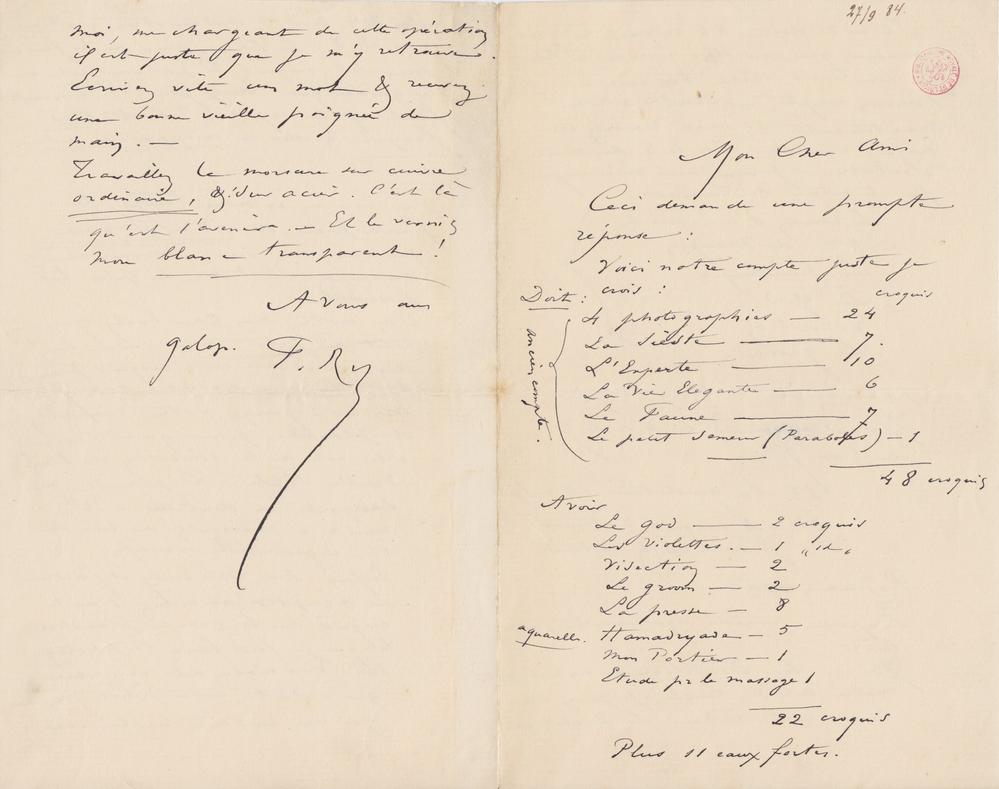 27/9 84.
Mon Cher Ami
Ceci demande une prompte
réponse :
Voici notre compte juste je
crois :
croquis
Doit :
ancien compte.
4 photographies — 24
La Sieste — 7.
L'Experte — 10
La Vie Elegante — 6
Le Faune — 7
Le petit semeur (Paraboles) — 1
48 croquis
Avoir
Le god — 2 croquis
Les Violettes. — 1 „id„
Visection — 2
Le groom — 2
La presse — 8
aquarelle. Hamadryade — 5
Mon Portier — 1
Etude pr le massage 1
22 croquis
Plus 11 eaux fortes.
moi, me chargeant de cette opération
il est juste que je m'y retrouve.
Ecrivez vite un mot & recevez
une bonne vieille poignée de
main. —
Travaillez la morsure sur cuivre
ordinaire, & sur acier. C'est là
qu'est l'avenir. — Et le vernis
mou blanc transparent !
A Vous au
galop. F. R